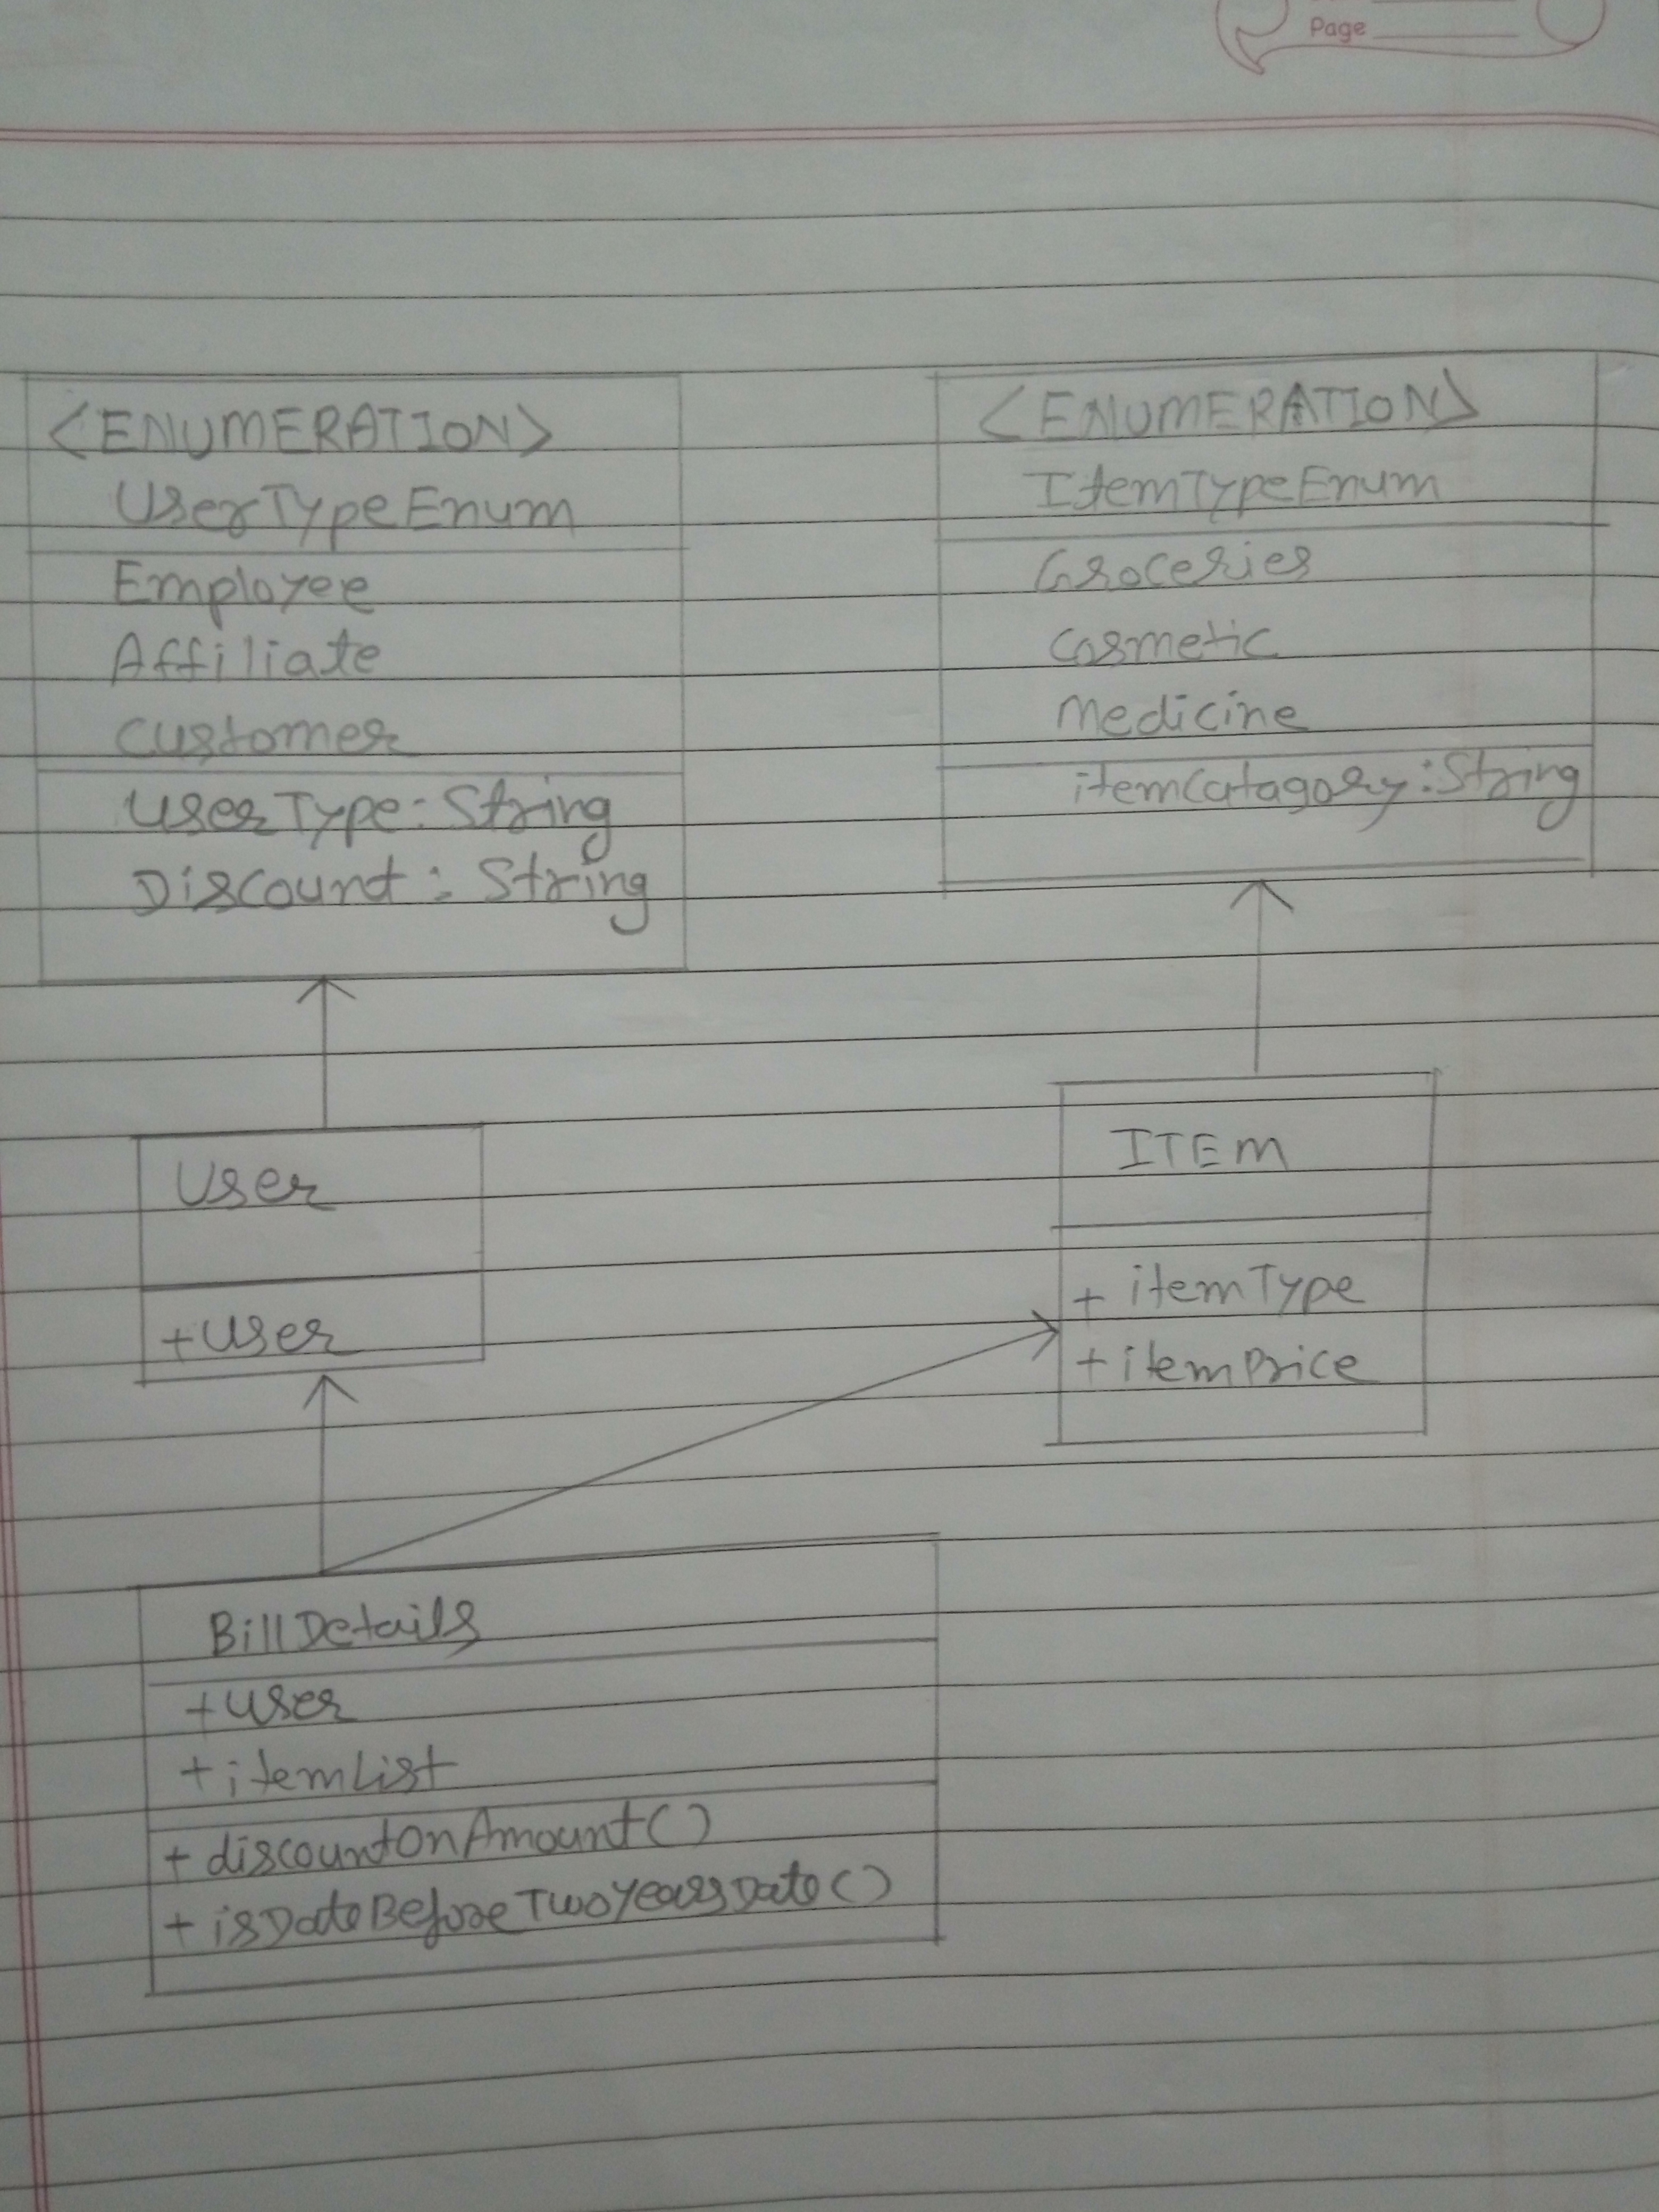 Page
<ENUMERATION>
UserTypeEnum
Employee
Affiliate
Customer
UserType: String
Discount: String
<ENUMERATION>
ItemTypeEnum
Groceries
Cosmetic
Medicine
itemCatagory: String
User
+User
ITEM
+ itemType
+ itemPrice
BillDetails
+User
+itemList
+ discountOnAmount()
+ isDateBeforeTwoYearsDate()